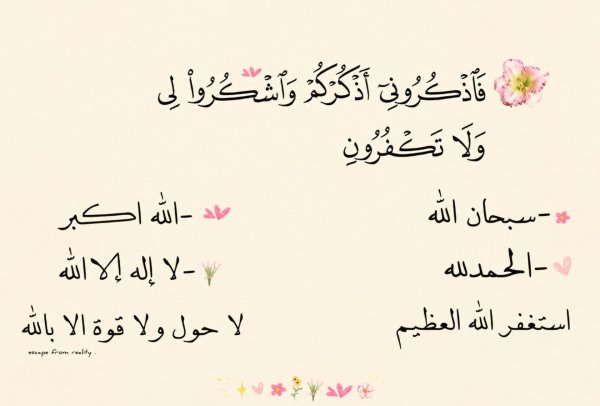 فَٱذۡكُرُونِيٓ أَذۡكُرۡكُمۡ وَٱشۡكُرُواْ لِي
وَلَا تَكۡفُرُونِ
-سبحان الله
-الله اكبر
-الحمدلله
-لا إله إلا الله
استغفر الله العظيم
لا حول ولا قوة الا بالله
escape from reality .